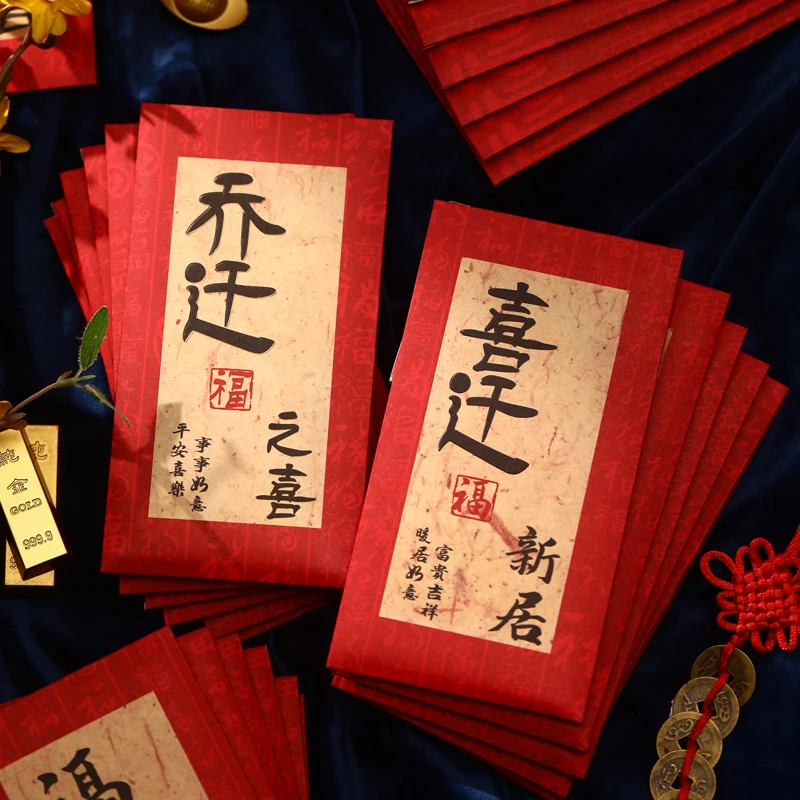 乔迁
福
之喜
事事如意
平安喜樂
喜迁
福
新居
富貴吉祥
暖居如意
純
金
GOLD
999.9
福